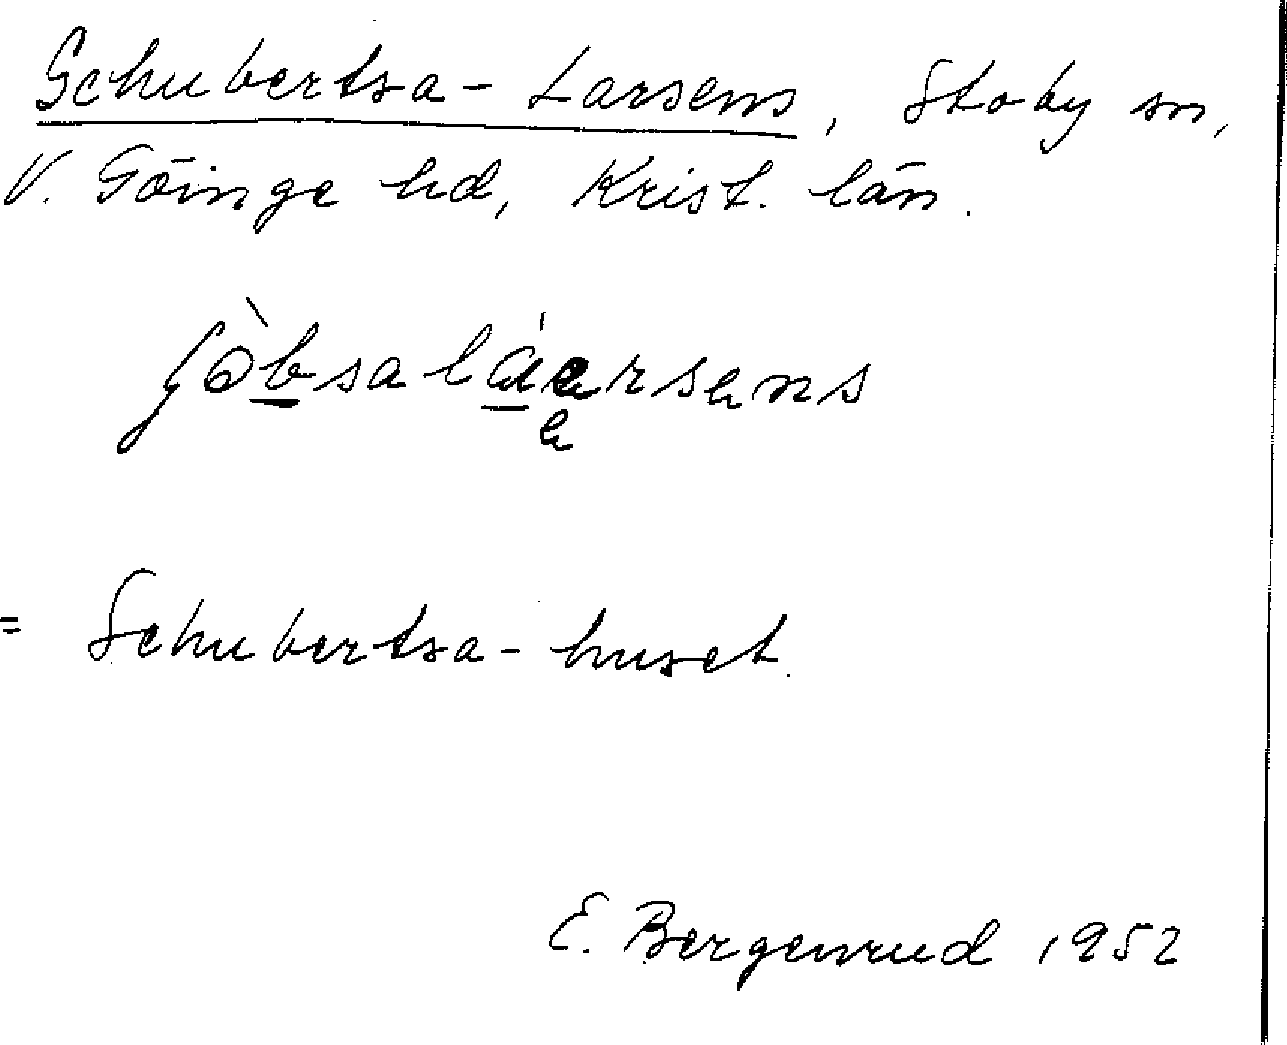 Schubertsa-Larsens, Stoby sn,
V. Göinge hd, Krist. län.
= Schubertsa-huset.
E. Bergenrud 1952